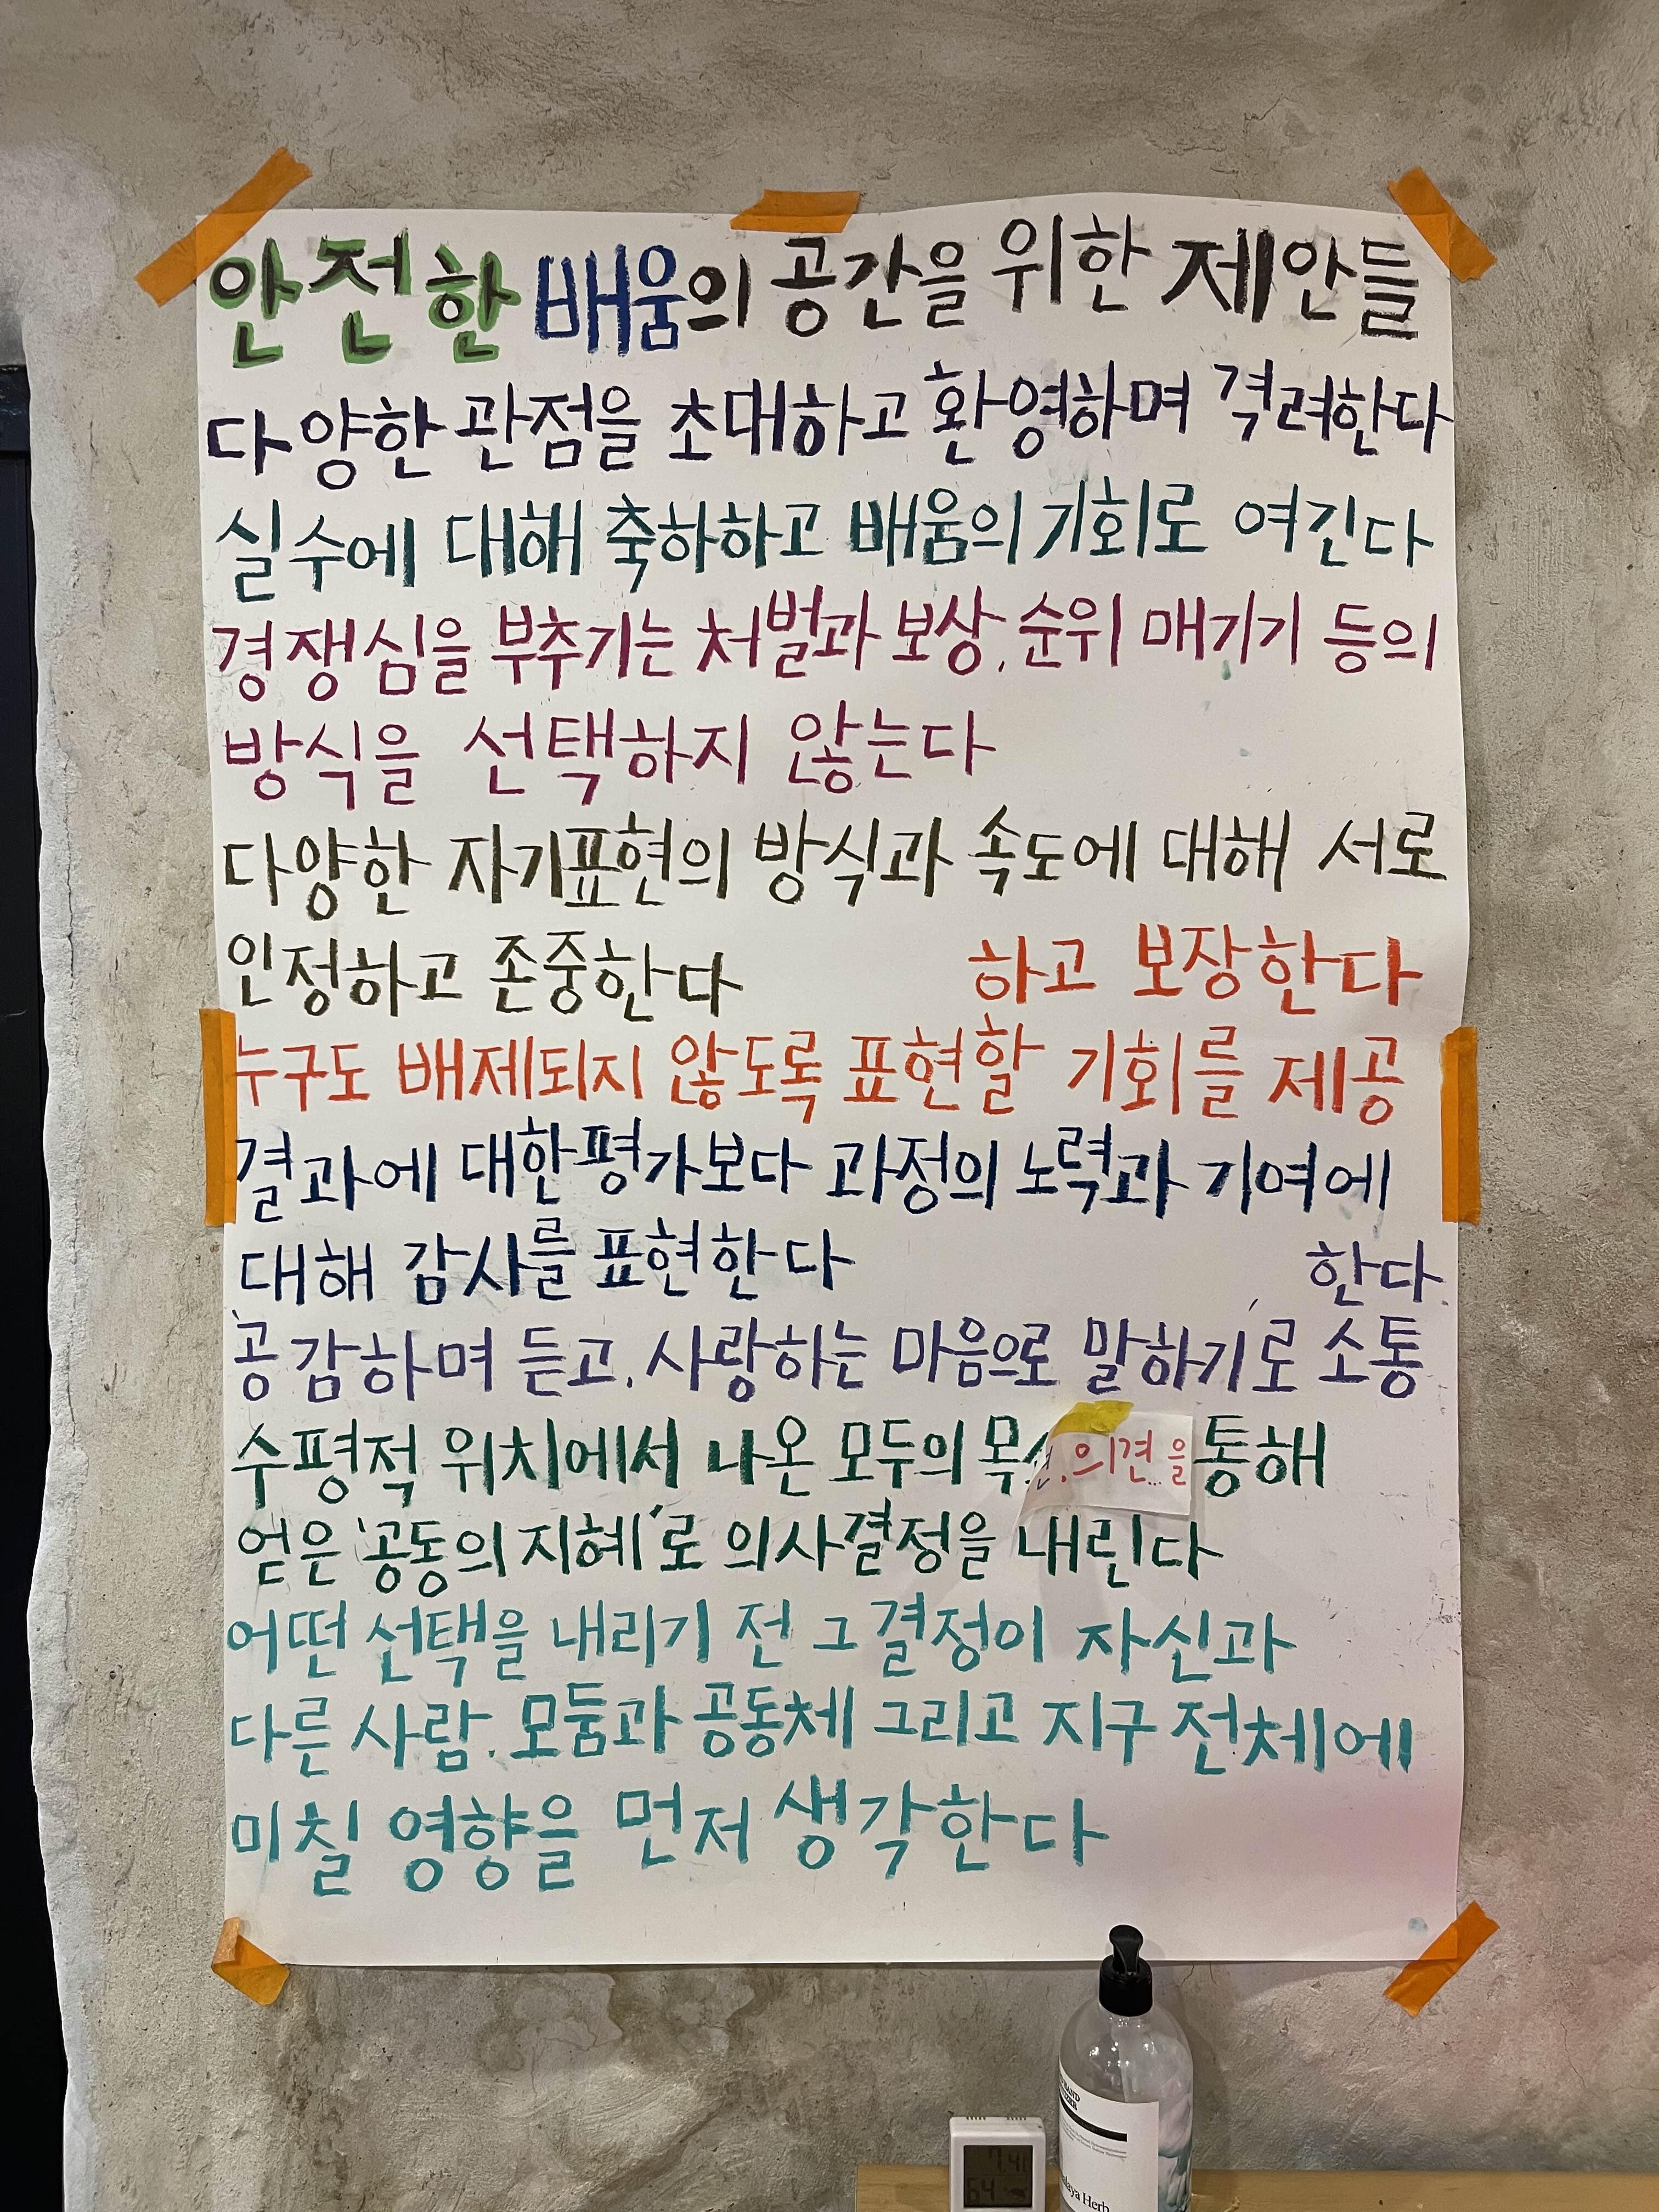 안전한 배움의 공간을 위한 제안들
다양한 관점을 초대하고 환영하며 격려한다
실수에 대해 축하하고 배움의 기회로 여긴다
경쟁심을 부추기는 처벌과 보상, 순위 매기기 등의
방식을 선택하지 않는다
다양한 자기표현의 방식과 속도에 대해 서로
인정하고 존중한다
누구도 배제되지 않도록 표현할 기회를 제공
하고 보장한다
결과에 대한 평가보다 과정의 노력과 기여에
대해 감사를 표현한다
'공감하며 듣고, 사랑하는 마음으로 말하기'로 소통
한다.
수평적 위치에서 나온 모두의 의견을 통해
얻은 '공동의 지혜'로 의사결정을 내린다
어떤 선택을 내리기 전 그 결정이 자신과
다른 사람, 모둠과 공동체 그리고 지구 전체에
미칠 영향을 먼저 생각한다
HAND
Herb
64